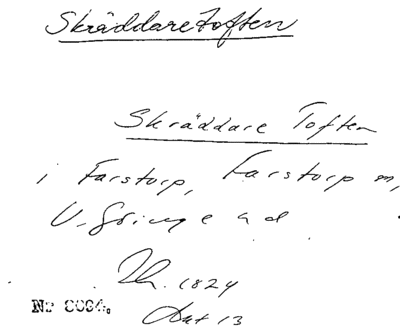 Skräddaretoften
Skräddare Toften
i Farstorp, Farstorp sn,
V. Göinge hd
Lh. 1824
Akt 13